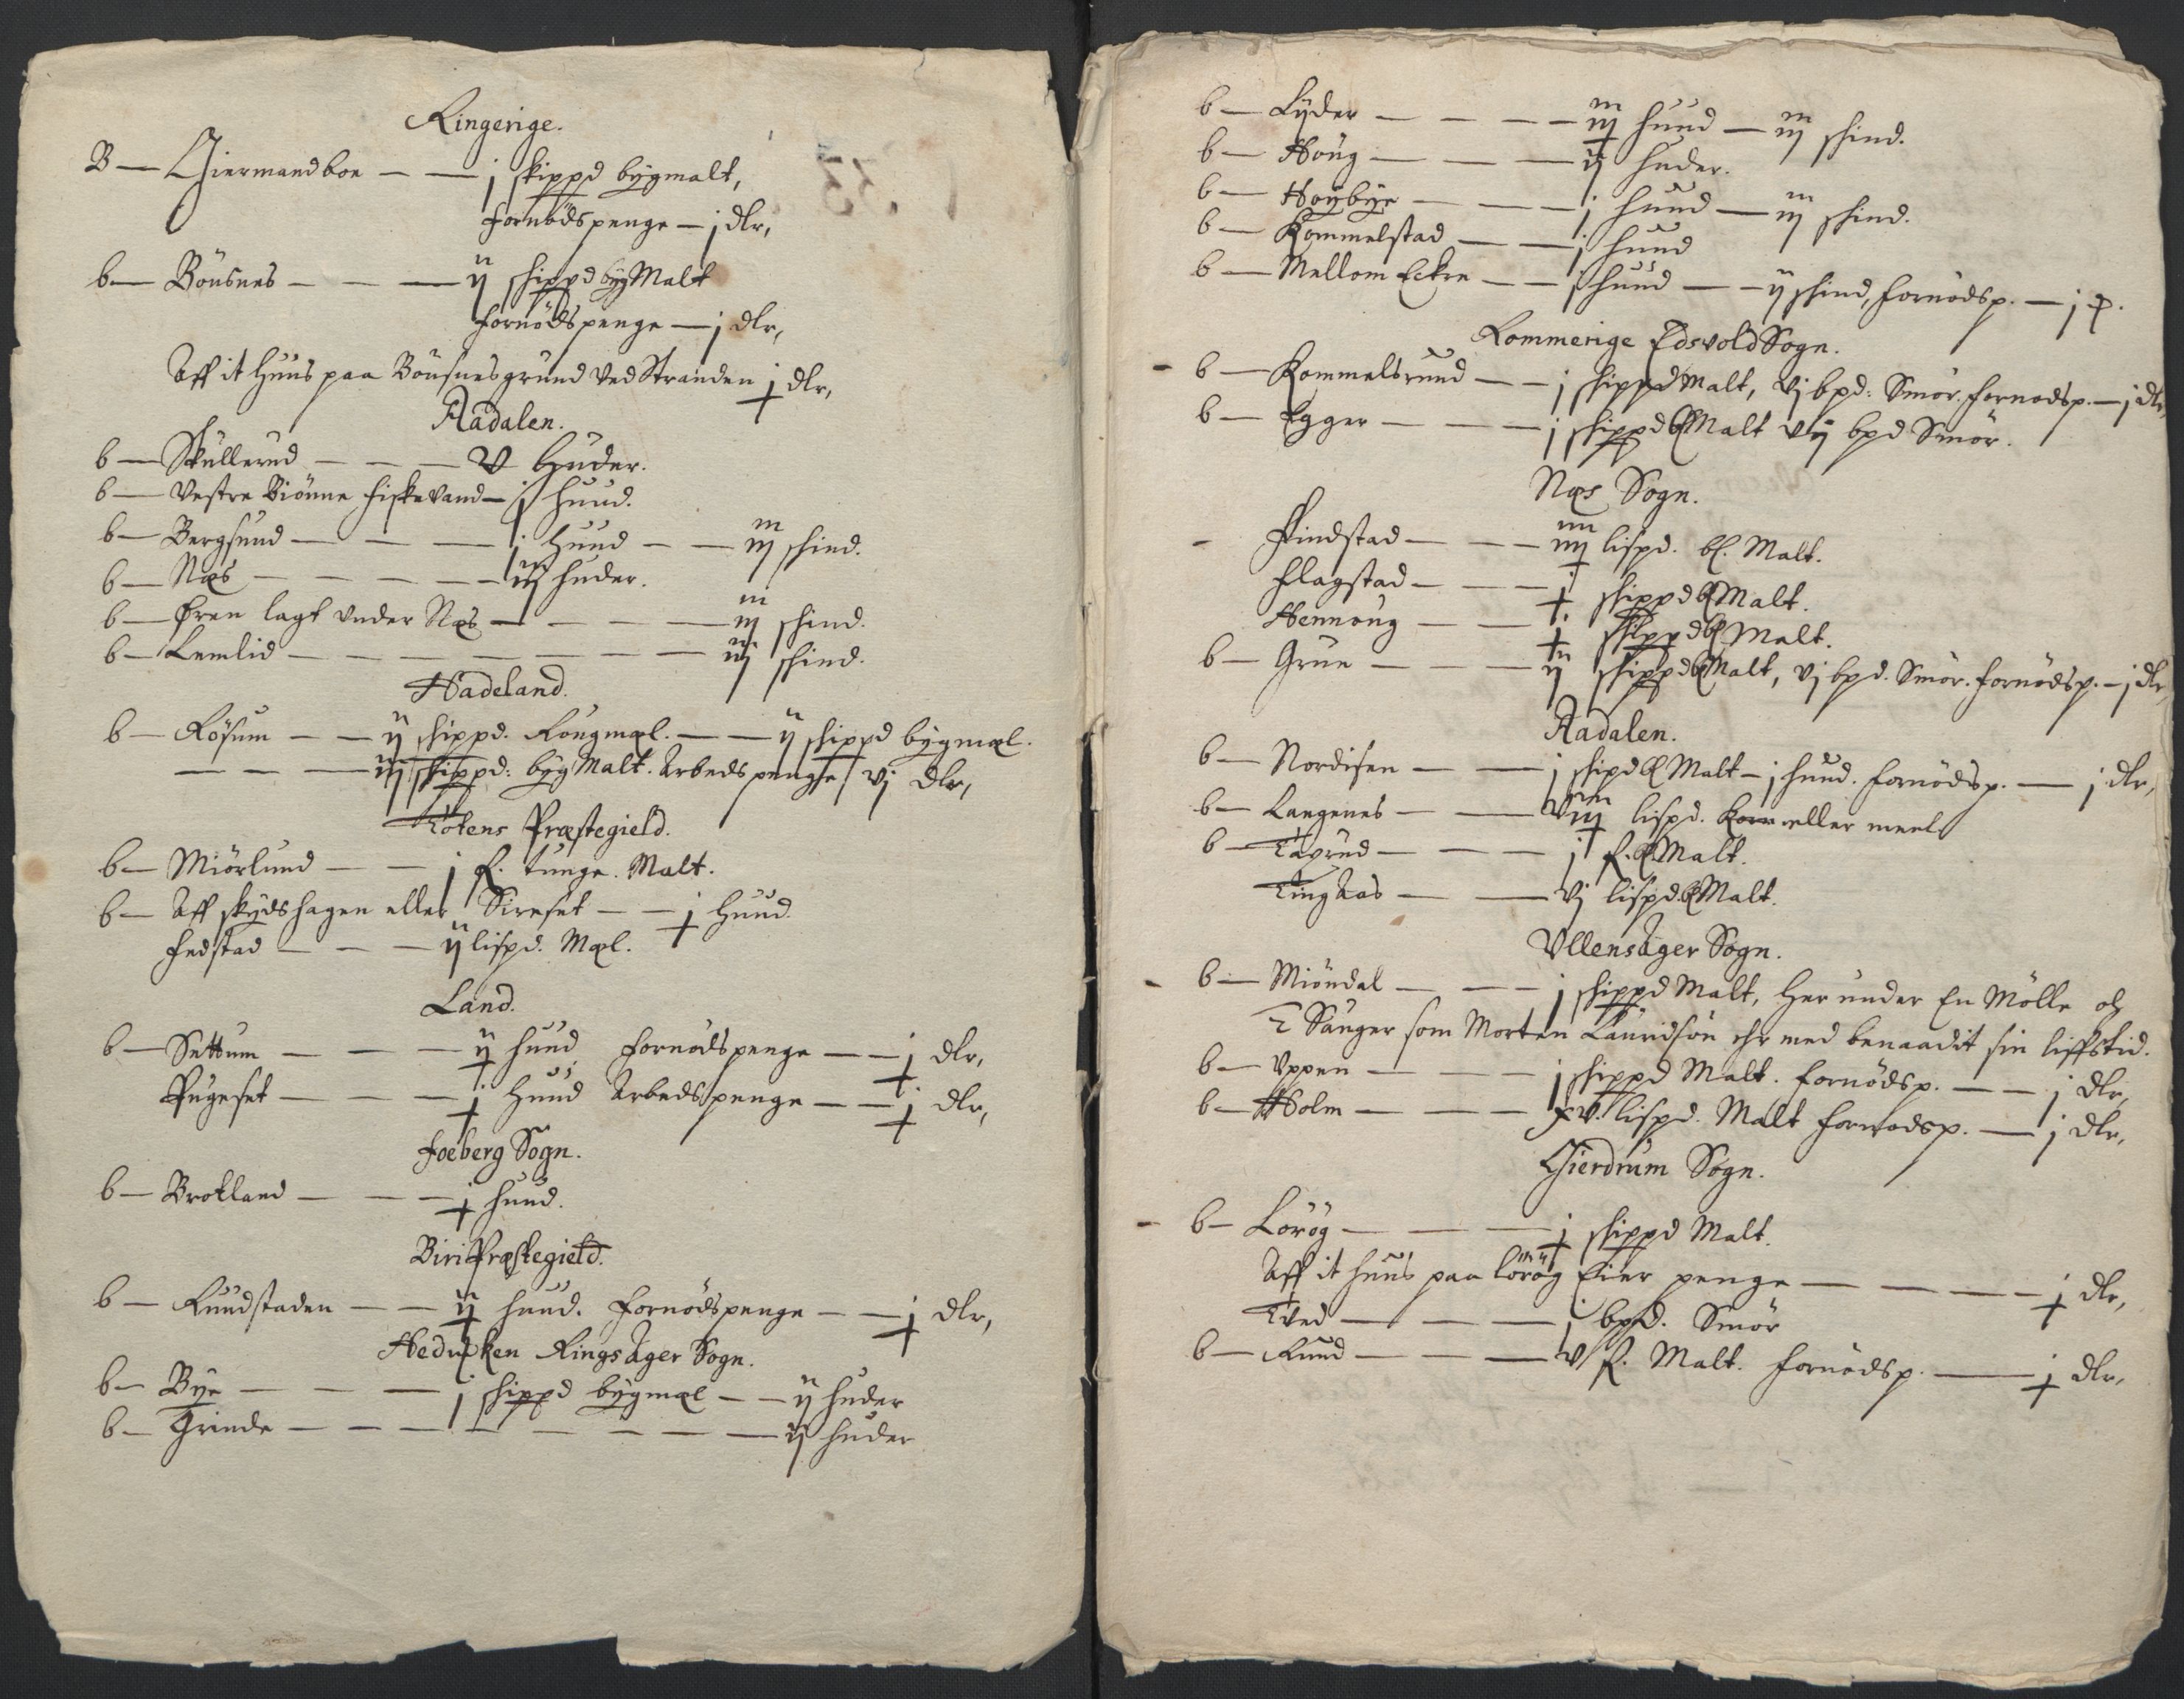 Ringerige.
B — Giermandboe — — j skippd bygmalt,
fornødspenge — j dlr,
b — Bönsnes — — — ij skippd byg Malt
fornødspenge — j dlr,
Aff it Huus paa Bönsnes grund ved Stranden j dlr,
Aadalen.
b — Skullerud — — — V Huder.
b — Vestre Biönne fiskevand — j huud.
b — Bergsund — — — j Huud — — iij skind.
b — Næs — — — — — iij huder.
b — Ören lagt under Næs — — — — iij skind.
b — Lemlid — — — — — — — — iij skind.
Hadeland.
b — Rösum — — ij skippd. Rougmæl. — — ij skippd bygmæl.
— — — iij skippd: byg Malt. Arbeds penge vj dlr,
Totens Præstegield.
b — Miörlund — — j f. tunge. Malt.
b — Aff skydshagen eller Sireset — — j Huud.
Fedstad — — — ij lispd. Mæl.
Land.
b — Settum — — — ij huud fornødspenge — — j dlr,
Pugeset — — — j Huud Arbedspenge — — j dlr,
Foeberg Sogn.
b — Brotland — — — j huud.
Biri Præstegield.
b — Ruudstaden — — ij huud. fornødspenge — — j dlr,
Hedmarken Ringsager Sogn.
b — Bye — — — j skippd bygmæl — — ij huder
b — Grinde — — — — — — — — ij huder
b — Lyder — — — — iij huud — iij skind.
b — Houg — — — — ij huder.
b — Høybye — — — j huud — iij skind.
b — Rommelstad — — j huud
b — Mellom Eckre — — j huud — — ij skind, fornødsp. — j
Rommerige Edsvold Sogn.
b — Rommelsrund — — j skippd Malt, vj bpd: Smör. fornødsp. — j dlr,
b — Egger — — — j skippd Malt vij bpd Smör.
Næs Sogn.
Findstad — — — iiij lispd. bl. Malt.
Flagstad — — — j skippd bl Malt.
Hennoug — — j skippd bl Malt.
b — Grue — — — ij skippd bl Malt, vj bpd. Smör. fornødsp. — j dlr,
Aadalen.
b — Nordisen — — j skipd bl Malt — j huud. fornødsp. — j dlr,
b — Langenes — — Viij lispd. Korn eller meel
b — Taprud — — — j f. bl Malt.
Ting Aas — — vj lispd. bl Malt.
Ullensager Sogn.
b — Miöndal — — — j skippd Malt, Her under En Mölle och
2 Sauger som Morten Lauridsøn ehr med benaadit sin liffstid.
b — Uppen — — — j skippd Malt. fornødsp. — — j dlr,
b — Holm — — — xv. lispd. Malt fornødsp. — j dlr,
Gierdrum Sogn.
b — Lorög — — — j skippd Malt.
Aff it huus paa lorög Eier penge — — — — j dlr,
Tved — — — j bpd. Smör
b — Ruud — — — V f. Malt. fornødsp. — — j dlr,